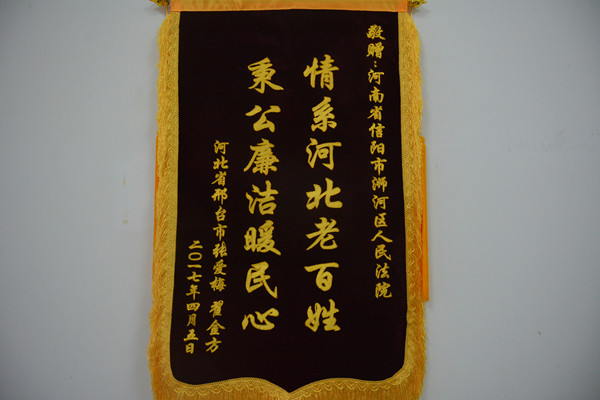 敬赠：河南省信阳市浉河区人民法院
情系河北老百姓
秉公廉洁暖民心
河北省邢台市张爱梅 翟金方
二〇一七年四月五日